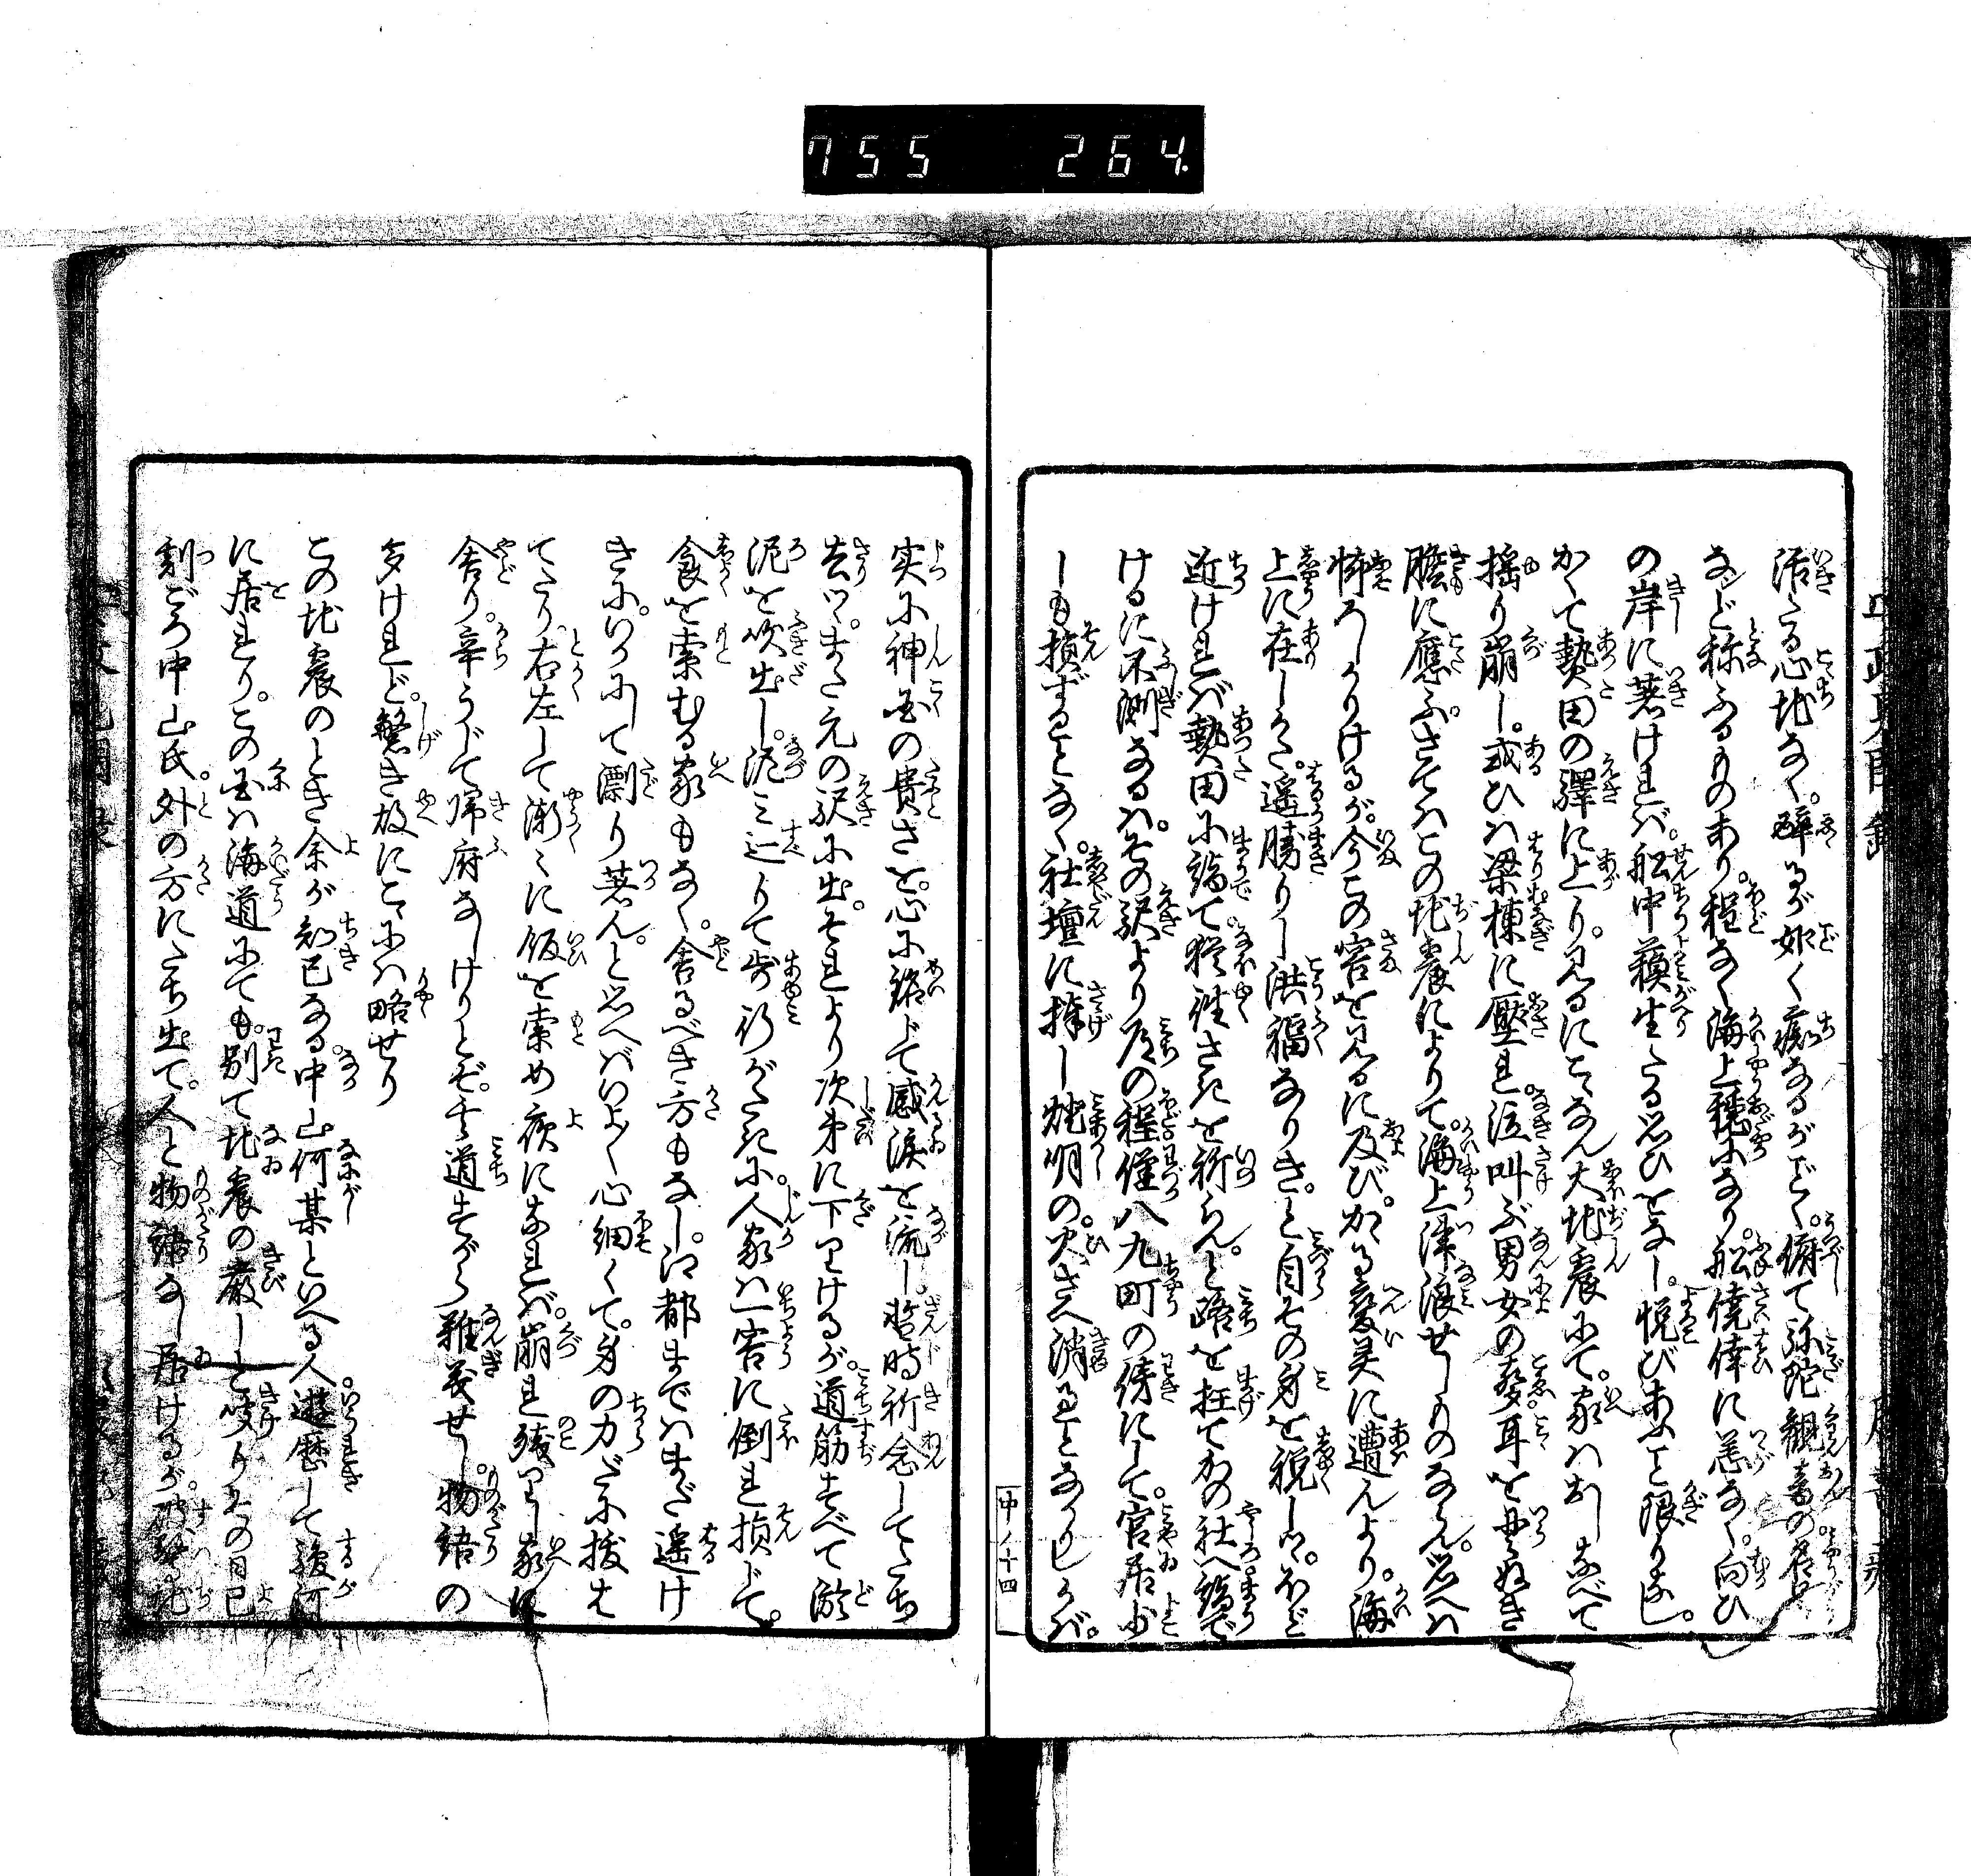 755 264.
活たる心地なく。酔るが如く痴なるがごとく。俯て弥陀観音の名号
など称ふるものあり。程なく海上穏になり。船僥倖に恙なく。向ひ
の岸に着ければ。船中蘇生たる思ひをなし。悦びあふこと限りなし。
かくて熱田の驛に上り。見るにこゝなん大地震にて。家はおしなべて
揺り崩し。或ひは梁棟に壓れ。泣叫ぶ男女の聲。耳を串ぬき
膽に應ふ。さてはこの地震によりて。海上津浪せしものならん。思へば
怖ろしかりけるが。今この容を見るに及び。かゝる變異に遭んより。海
上に在しかた。遥勝りし洪福なりき。と自その身を祝しつ。ほど
近ければ熱田に詣て。猶往さきを祈らん。と路を枉てかの社へ詣で
けるに不測なるは。その駅より左の程僅八九町の傍にして。官居少
しも損ずることなく。社壇に捧し燈明の。火さへ消ることなかりしかば。
中ノ十四
実に神国の貴さを。心に銘じて感涙を流し。暫時祈念してたち
去りつ。また元の駅に出。それより次第に下りけるが。道筋すべて淤
泥を吹出し。泥に辷りて歩行がたきに。人家は一容に倒れ損じて。
食を索むる家もなく。舎るべき方もなし。江都まではまだ遥け
きに。いかにして漂り着ん。と思へばいよ〳〵心細くて。身の力だに抜は
てたり。右左して漸々に飯を索め夜になれば。崩れ残りし家に
舎り。辛うじて帰府なしけりとぞ。云々道すがら難義せし。物語の
多けれど。繁き故にこゝには略せり
この地震のとき余が知己なる。中山何某といへる人。遊歴して駿河
に居れり。この国は海道にても。別て地震の厳しと聞り。その日巳
刻ごろ中山氏。外の方にたち出て。人と物語なし居けるが。